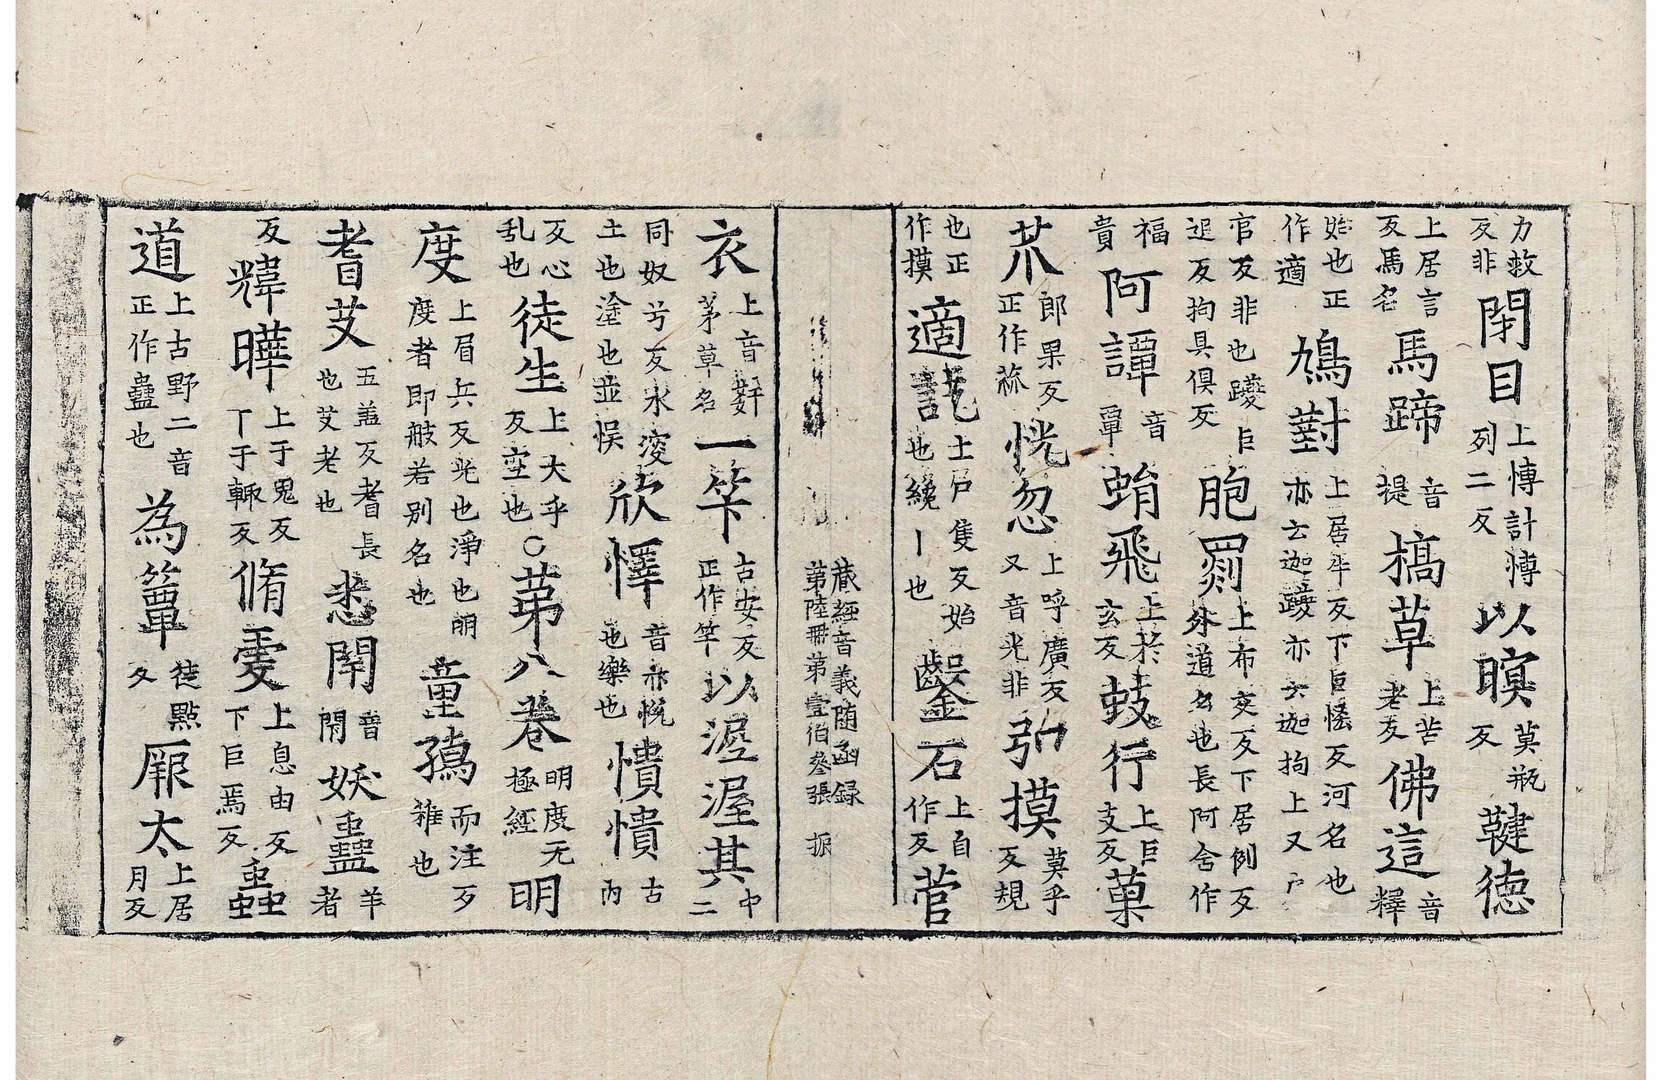 力救反非閇目上博計博列二反以暝莫瓶反鞬德
上居言反馬名馬蹄音提槁草上苦老反佛這音釋
始也正作適鳩對上居牛反下巨惰反河名也亦云迦𨇤亦云迦拘上又尸
官反非也𨇤巨追反拘具俱反胞罽上布交反下居例反外道名也長阿含作
福貴阿譚音覃蛸飛上於玄反蚑行上巨支反菓
蓏郎果反正作蓏恍忽上呼廣反又音光非弘摸莫乎反規
也正作摸適訖土戶隻反始也纔丨也鑿石上自作反菅
藏經音義隨函録第陸冊第壹伯叄張 振
衣上音姧茅草名一竿古安反正作竿以渥渥其中二
同奴兮反水土也塗也並悮欣懌音亦悅也樂也憒憒古內
反心乱也徒生上大乎反空也○苐八卷明度无極經明
度上眉兵反光也淨也明度者即般若別名也童孺而注反稚也
耆艾五盖反耆長也艾老也悉閇音閇妖蠱羊者
反煒曄上于鬼反丁于輒反脩虔上息由反下巨焉反蠱
道上古野二音正作蠱也為簟徒點反厩太上居月反